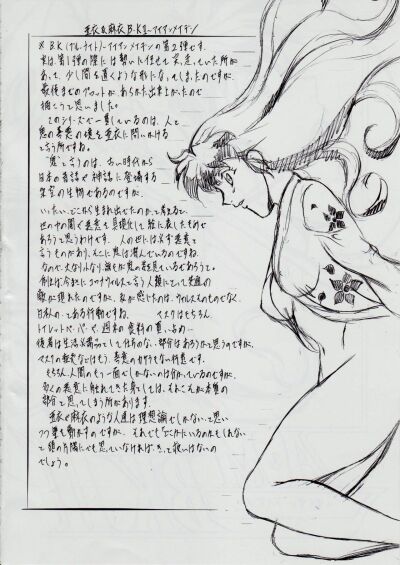 亜衣&麻衣B.K.II〜アイアンメイデン
※ B.K.(ナル・ライト)〜アイアンメイデンの第2弾です。
実は第1弾の際には勢いに任せて
あって、少し間を置くような形になってしまったのですが、
最後までのプロットがあらかた出来上がったので
描こうと思いました。
このシリーズで一貫しているのは、人と
鬼の善悪の境を亜衣に問いかける
と言う所ですね。
"鬼"と言うのは、古い時代から
日本の昔話や神話に登場する
架空の生物であるのですが、
いったい、どこから生まれ出たのか、と考えると、
世の中の悪意を具現化して絵に表したものでは
あろうと思うわけです。 人の世には必ず悪意と
言うものがあり、そこに鬼は潜んでいるのですね。
なので、大なり小なり、誰もが鬼の
例えば、今ならにコロナウイルスと言う人類にとって共通の
敵が現れたのですが、私が感じたのは、ウイルスそのものでなく、
日本人のとある行動ですね。 マスクはもちろん、
トイレットペーパーや、週末の食料の買い占め…
後者は生活必需品として仕方のない部分はあろうかと思うのですが、
マスクの転売などはもう、善意のカケラもない所意です。
もちろん、人間のもつ一面でしかないのは分かっているのですが、
多くの悪意に触れてきた身としては、それこそが本質の
部分と思ってしまう所があります。
亜衣や麻衣のような人達は理想論でしかない、と思い
つつ筆を動かすのですが、それでも「どこかにいるのかもしれない」
と頭の片隅にでも思っていなければ、きっと救いはないの
でしょう。